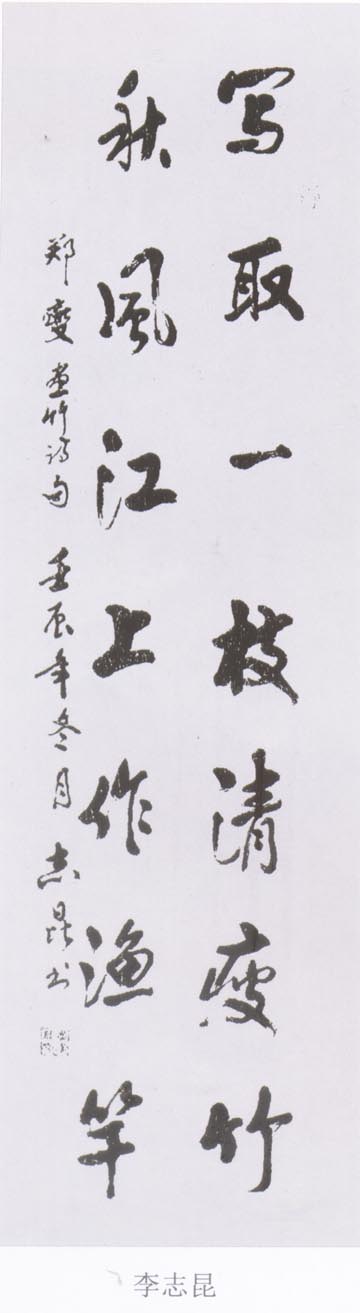 写取一枝清瘦竹
秋風江上作渔竿
郑燮画竹诗句 壬辰年冬月志昆书
李志昆